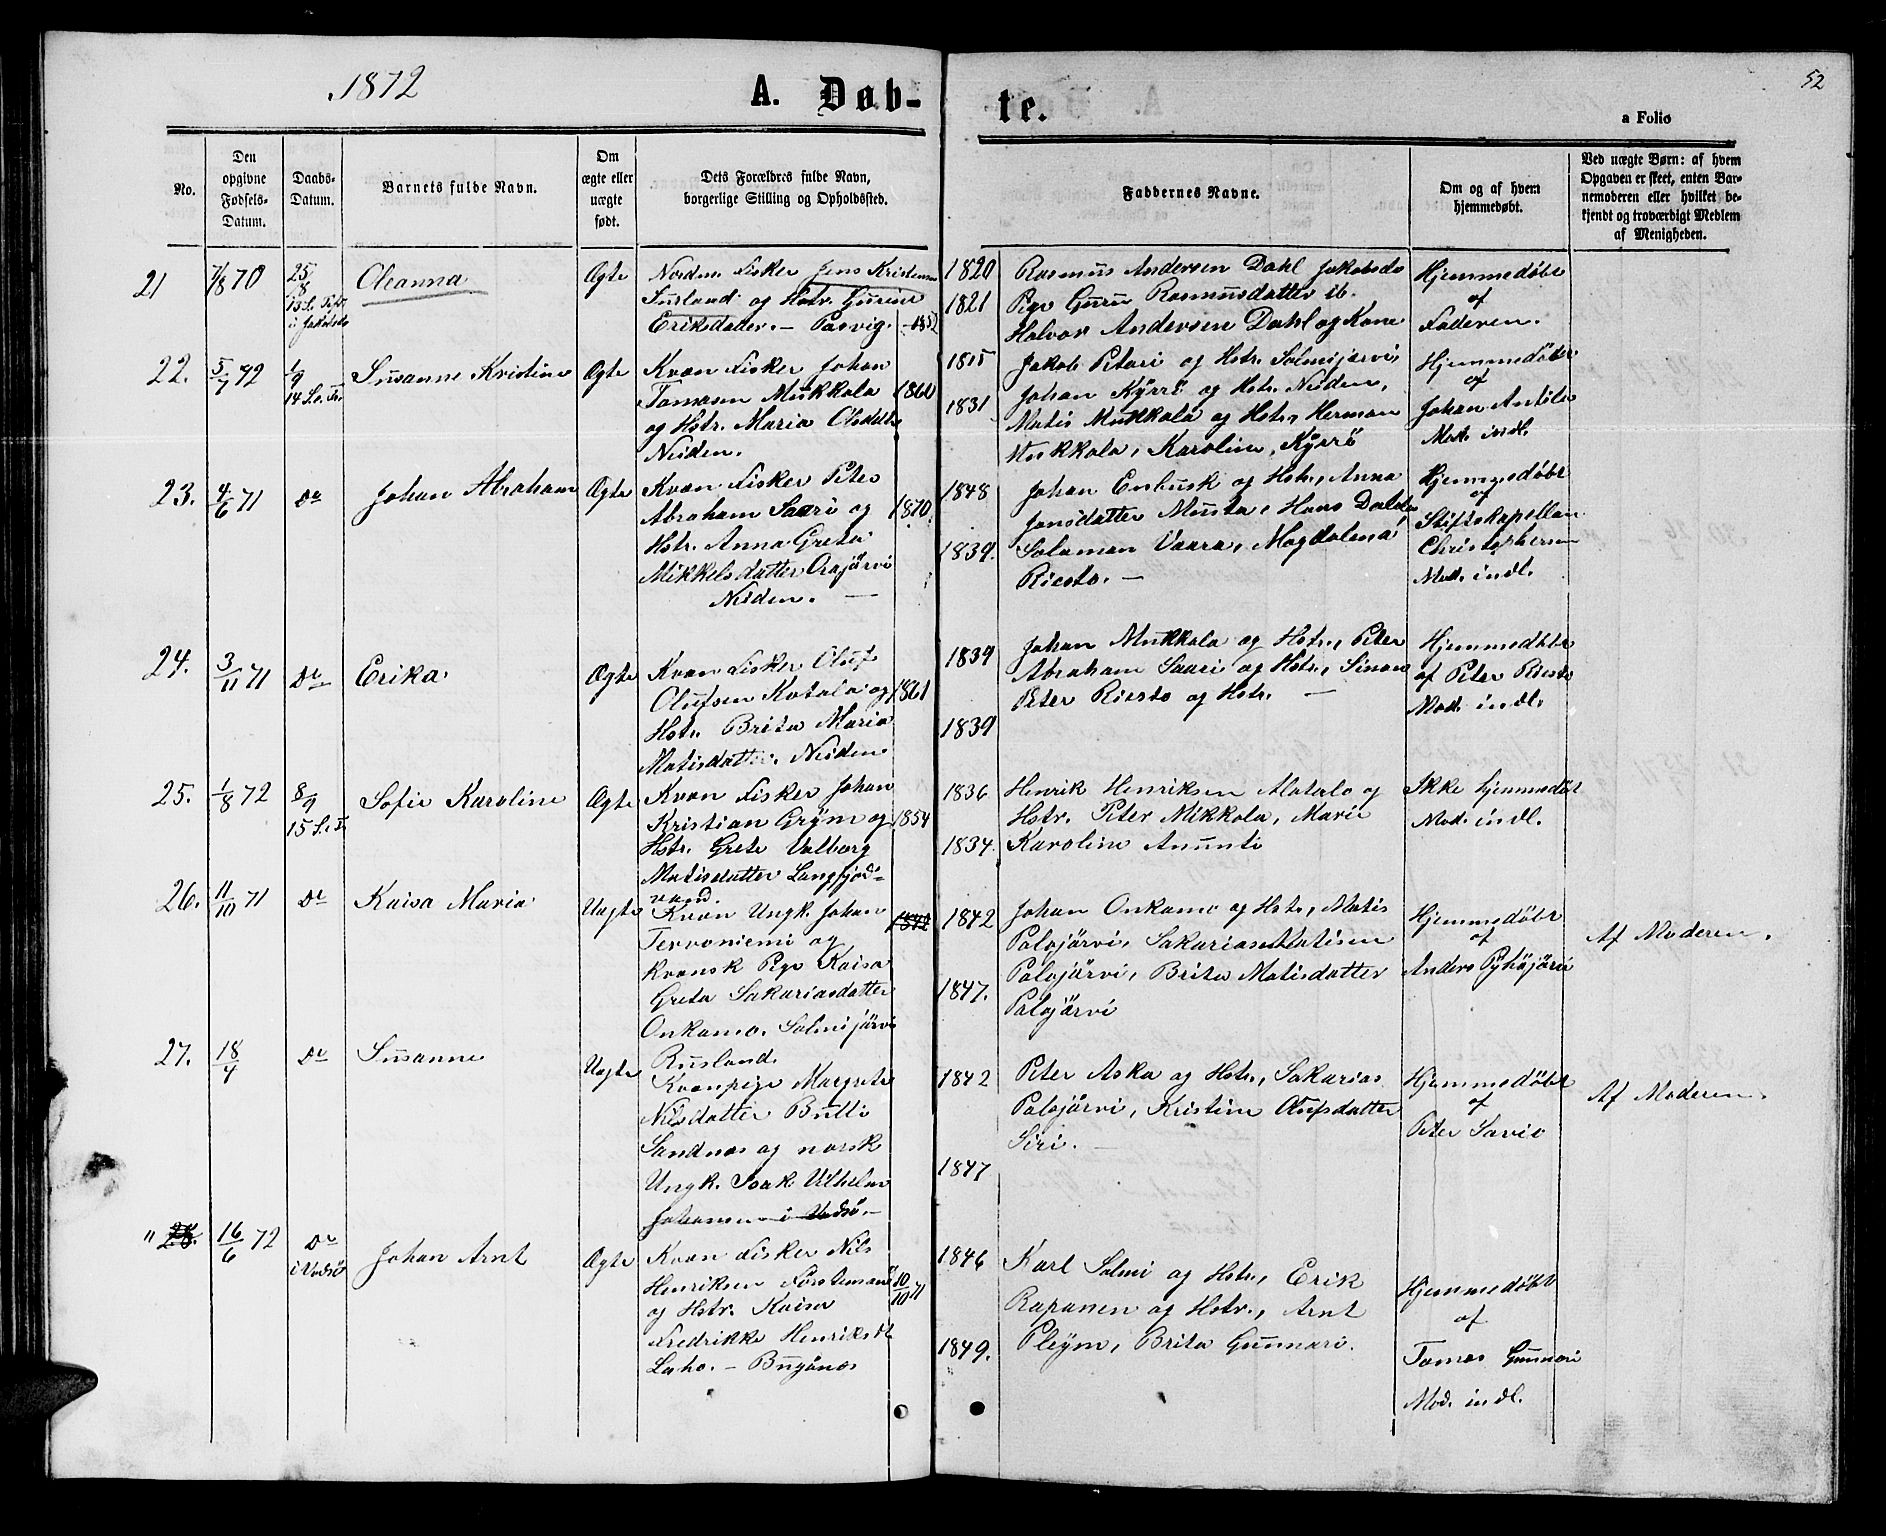 1872
A. Døb-
te.
52
a Folio
No.
Den
opgivne
Fødsels-
Datum.
Daabs-
Datum.
Barnets fulde Navn.
Om
ægte eller
uægte
født.
Dets Forældres fulde Navn,
borgerlige Stilling og Opholdssted.
Faddernes Navne.
Om og af hvem
hjemmedøbt.
Ved uægte Børn: af hvem
Opgaven er skeet, enten Bar-
nemoderen eller hvilket be-
kjendt og troværdigt Medlem
af Menigheden.
21
7/8 70
25/8
13 S. Tr.
i Jakobselv
Oleanna
Ægte
Nordm. Fisker Jens Kristensen
og Hstr. Gurine
Eriksdatter. — Pasvig.
1857
1820
1821
Rasmus Andersen Dahl Jakobselv
Pige Guru Rasmusdatter ib.
Halvor Andersen Dahl og Kone
Hjemmedøbt
af
Faderen.
22.
5/7 72
1/9
14 S. e. Tr.
Susanne Kristine
Ægte
Kvæn Fisker Johan
Tomasen Mukkola
og Hstr. Maria Olsdatter
Neiden.
1860
1815
1831
Jakob Petari og Hstr. Salmijarvi,
Johan Kyrrö og Hstr. Neiden,
Matis Mukkola og Hstr., Herman
Mukkola, Karoline Kyrrö
Hjemmedøbt
af
Johan Antila
Mod. indl.
23.
4/6 71
Do
Johan Abraham
Ægte
Kvæn Fisker Peter
Abraham Saari og
Hstr. Anna Greta
Mikkelsdatter Orajärvi
Neiden. —
1870.
1848
1839.
Johan Enbusk og Hstr., Anna
Jonsdatter Musta, Hans
Salamon Vaara, Magdalena
Riesto. —
Hjemmedøbt
af
Stiftskapellan
Christophersen
Mod. indl.
24.
3/11 71
Do
Erika.
Ægte
Kvæn Fisker Oluf
Olufsen Katala og
Hstr. Brita Maria
Matisdatter. Neiden
1861
1839
1839
Johan Mukkola og Hstr., Peter
Abraham Saari og Hstr., Simon
Peter Riesto og Hstr. —
Hjemmedøbt
af Peter Riesto
Mod. indl.
25.
1/8 72
8/9
15 S. e. Tr.
Sofie Karoline
Ægte
Kvæn Fisker Johan
Kristian Grym og
Hstr. Grete Valborg
Matisdatter Langfjord-
vand.
1854
1836
1834.
Henrik Henriksen Matala og
Hstr. Peter Mikkola, Marie
Karoline Anunti
Ikke hjemmedøbt
Mod. indl.
26.
11/10 71
Do
Kaisa Maria
Uægte
Kvæn Ungk. Johan
Tervoniemi og
kvænsk Pige Kaisa
Greta Sakariasdatter
Onkamo. Salmijärvi
Rusland.
1842
1847.
Johan Onkamo og Hstr., Matis
Palojärvi, Sakarias Matisen
Palojärvi, Brita Matisdatter
Palojärvi
Hjemmedøbt
af
Anders Pyhäjärvi
Af Moderen.
27.
18/4
Do
Susanne
Uægte
Kvænpige Margrete
Nilsdatter Butti
Sandnæs og norsk
Ungk. Isak Vilhelm
Johansen i Vadsø. —
1842
1847
Peter Aska og Hstr., Sakarias
Palojärvi, Kristine Olufsdatter
Siri. —
Hjemmedøbt
af
Peter Savio
Af Moderen.
" 28.
16/6 72
Do
i Vadsø
Johan Arnt
Ægte
Kvæn Fisker Nils
Henriksen
og Hstr. Kaisa
Fredrikke Henriksdt
Laho. — Bugønæs
10/10 71
1846
1849.
Karl Salmi og Hstr., Erik
Rapanen og Hstr., Arnt
Pleym, Brita Gunnari.
Hjemmedøbt
af
Tomas Gunnari
Mod. indl.